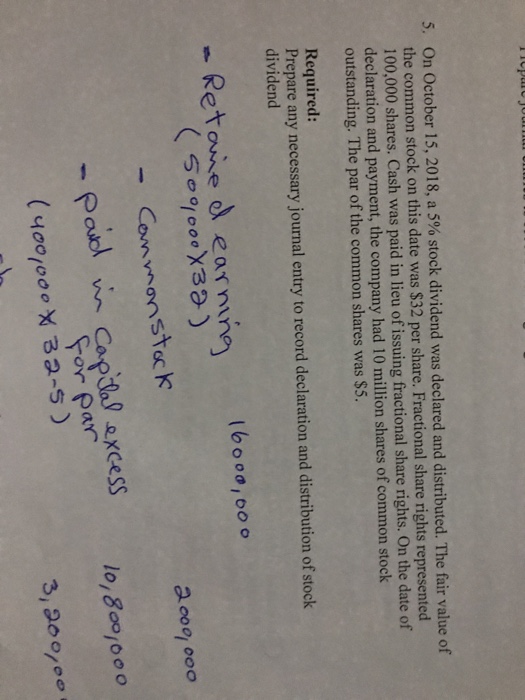 5. On October 15, 2018, a 5% stock dividend was declared and distributed. The fair value of
the common stock on this date was $32 per share. Fractional share rights represented
100,000 shares. Cash was paid in lieu of issuing fractional share rights. On the date of
declaration and payment, the company had 10 million shares of common stock
outstanding. The par of the common shares was $5.
Required:
Prepare any necessary journal entry to record declaration and distribution of stock
dividend
- Retained earning 16000,000
(500,000X32)
- Common stock 2000,000
- paid in Capital excess 10,800,000
for par
(400,000 X 32-5) 3,200,00